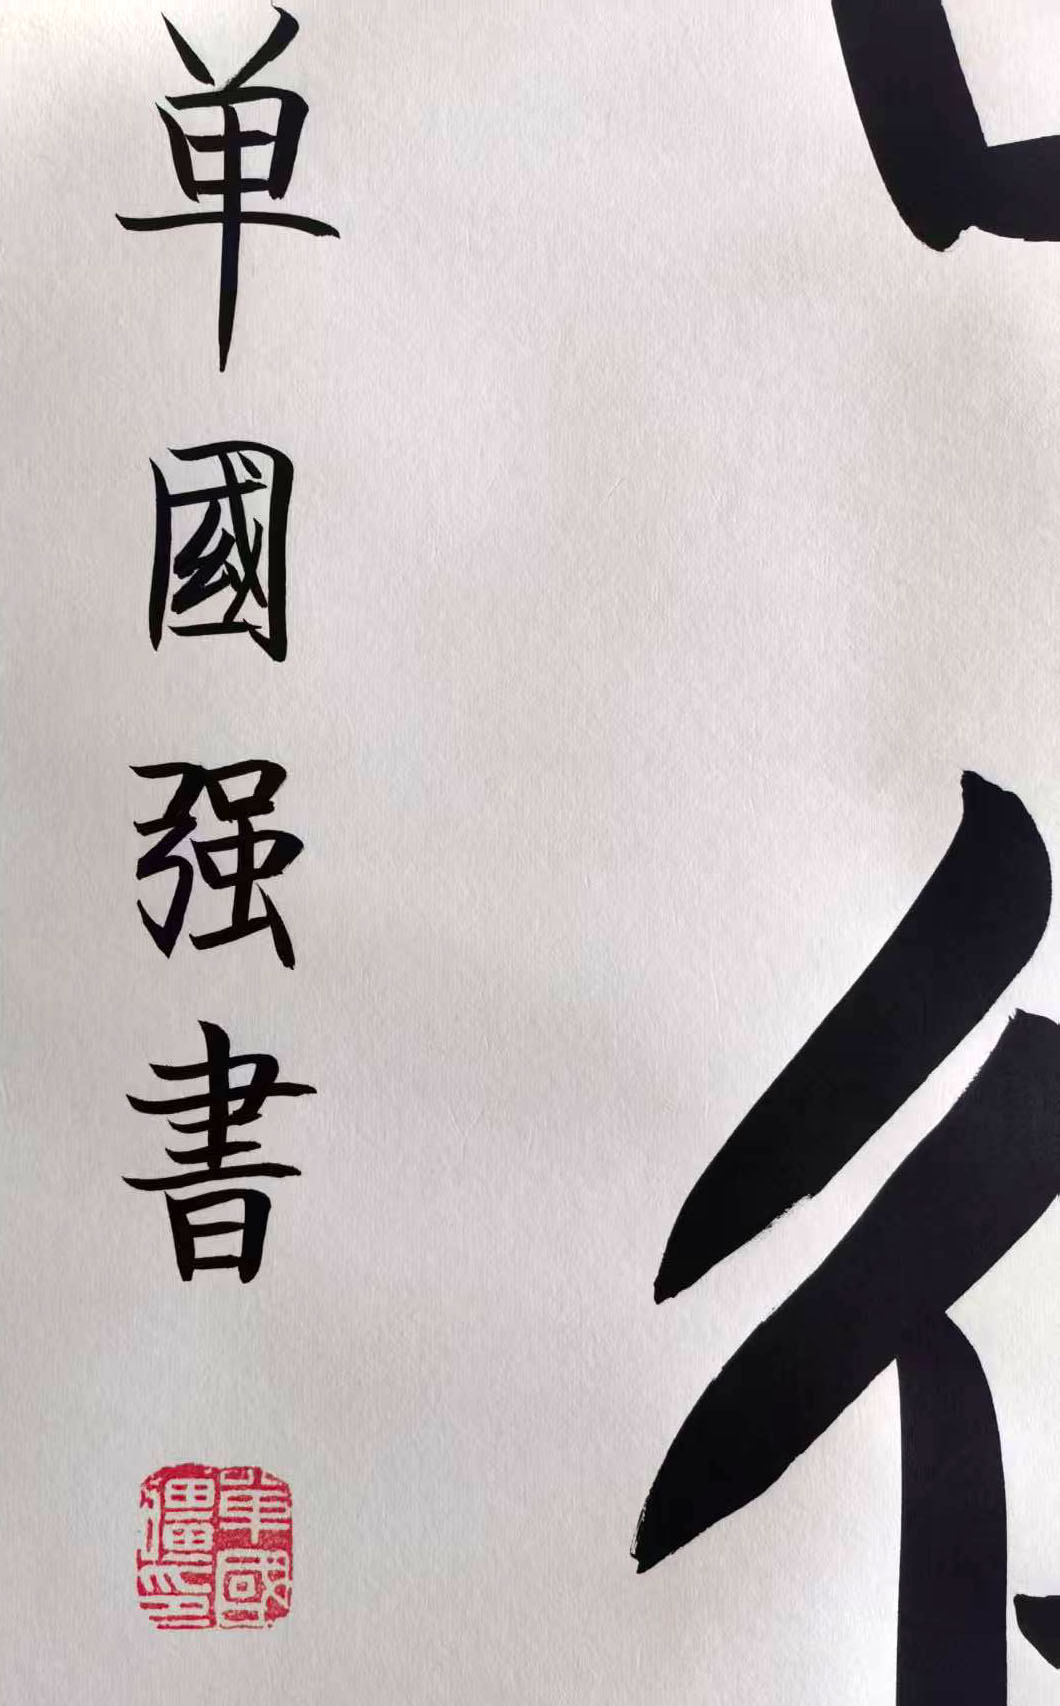 单國强書
单國彊印